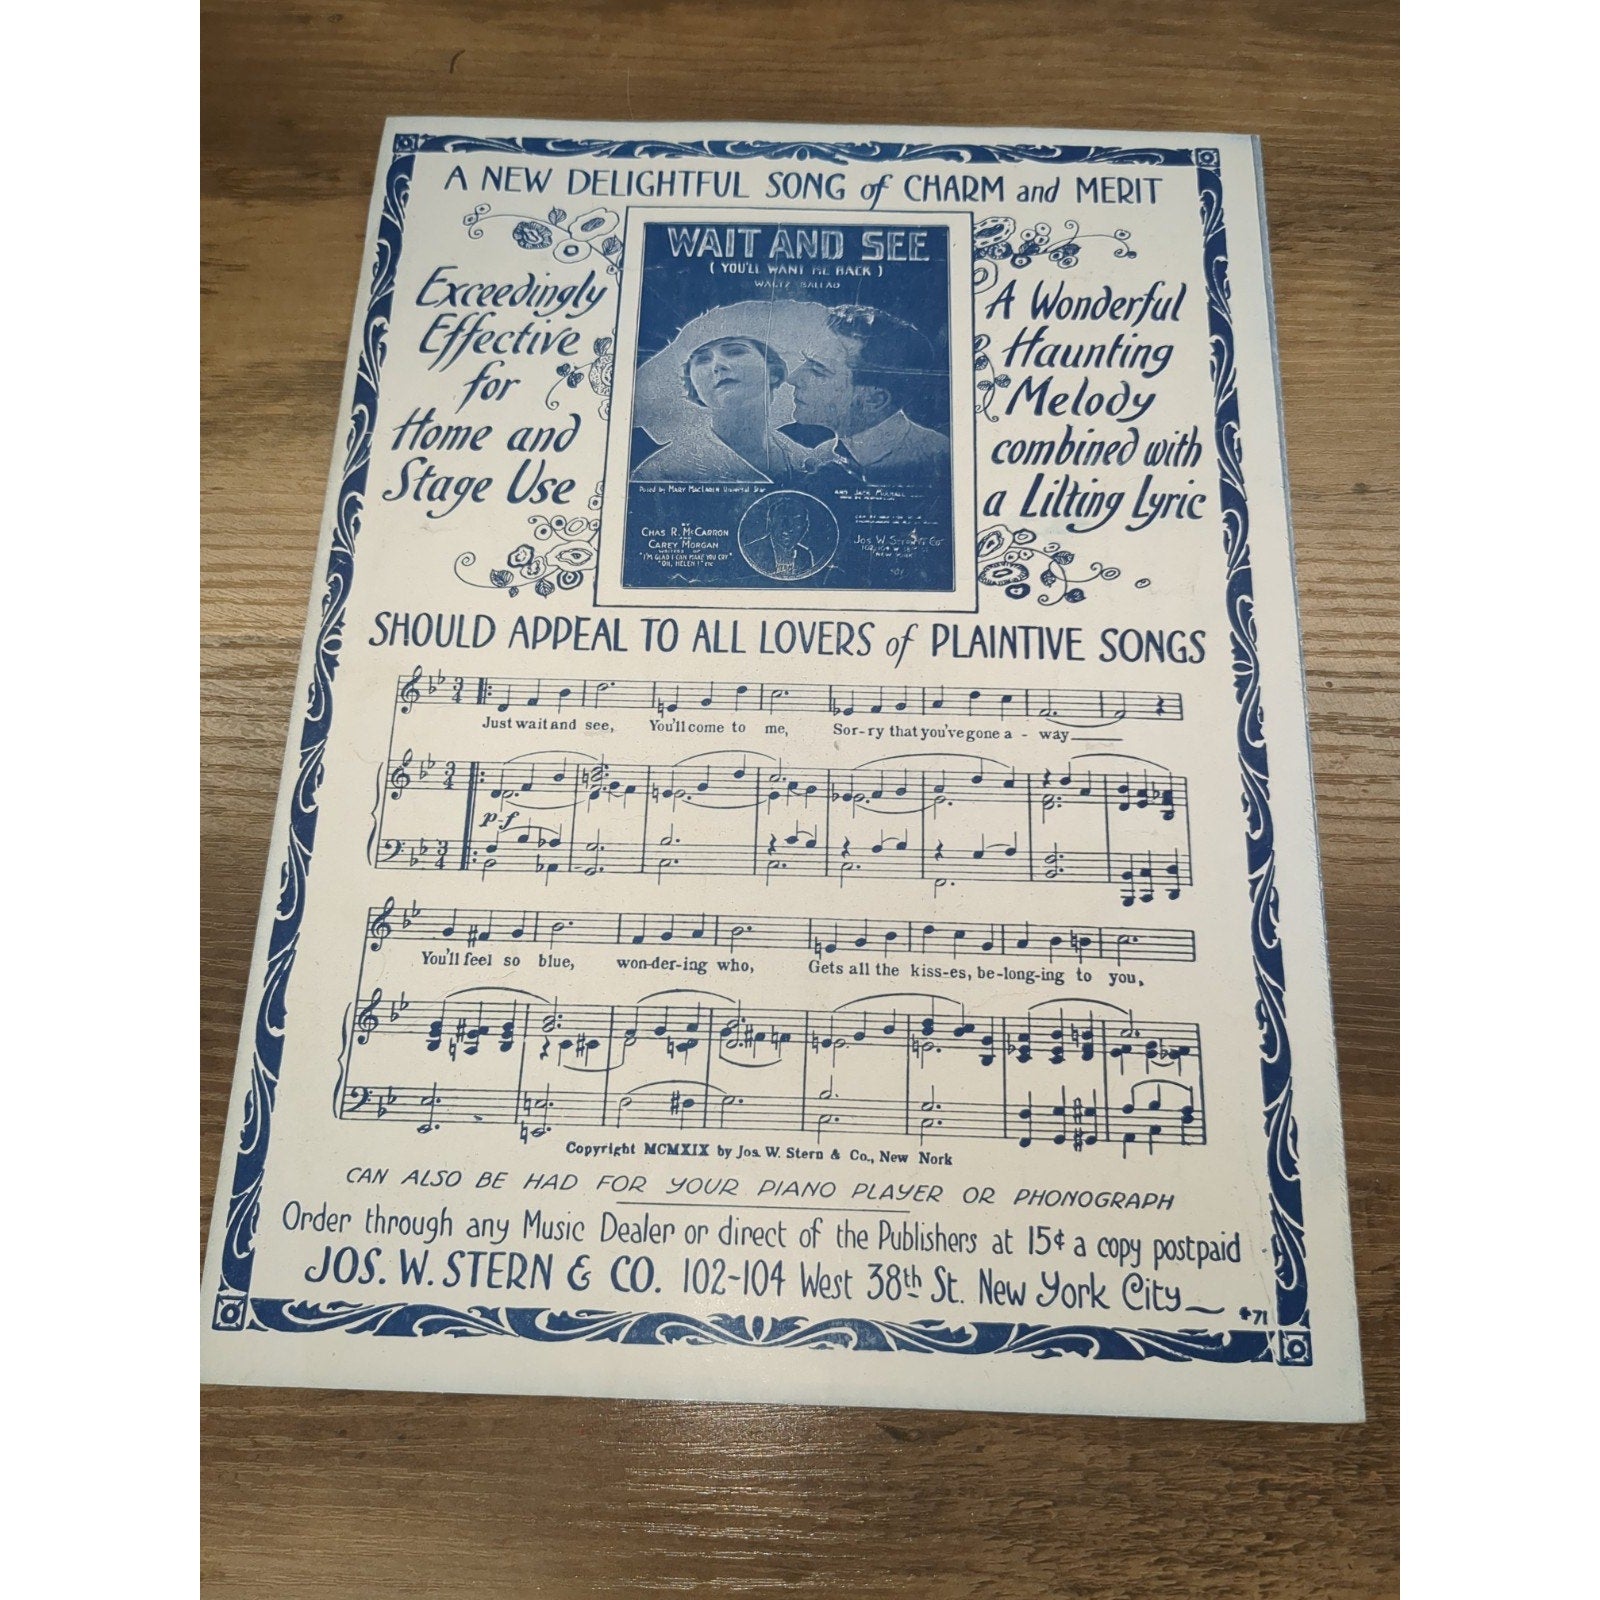 A NEW DELIGHTFUL SONG of CHARM and MERIT
Exceedingly
Effective
for
Home and
Stage Use
WAIT AND SEE
( YOU'LL WANT ME BACK )
WALTZ BALLAD
Posed by MARY MACLAREN Universal Star
AND JACK MULHALL
BY
CHAS R. McCARRON
AND
CAREY MORGAN
WRITERS OF
"I'M GLAD I CAN MAKE YOU CRY"
"OH, HELEN!" ETC
JOS. W. STERN & CO
102-104 W. 38
NEW YORK
A Wonderful
Haunting
Melody
combined with
a Lilting Lyric
SHOULD APPEAL TO ALL LOVERS of PLAINTIVE SONGS
Just wait and see, You'll come to me, Sor-ry that you've gone a - way
p-f
You'll feel so blue, won-der-ing who, Gets all the kiss-es, be-long-ing to you,
Copyright MCMXIX by Jos. W. Stern & Co., New Nork
CAN ALSO BE HAD FOR YOUR PIANO PLAYER OR PHONOGRAPH
Order through any Music Dealer or direct of the Publishers at 15¢ a copy postpaid
JOS. W. STERN & CO. 102-104 West 38th St. New York City
+71